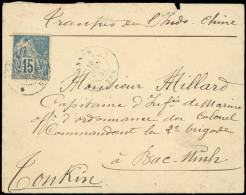 Tranfées de l'Indo-Chine
15
Monsieur Millard
Capitaine d'Inf<sup>ie</sup> de Marine
officier d'ordonnance du Colonel
Commandant la 2<sup>e</sup> brigade
à Bac-Ninh
Tonkin